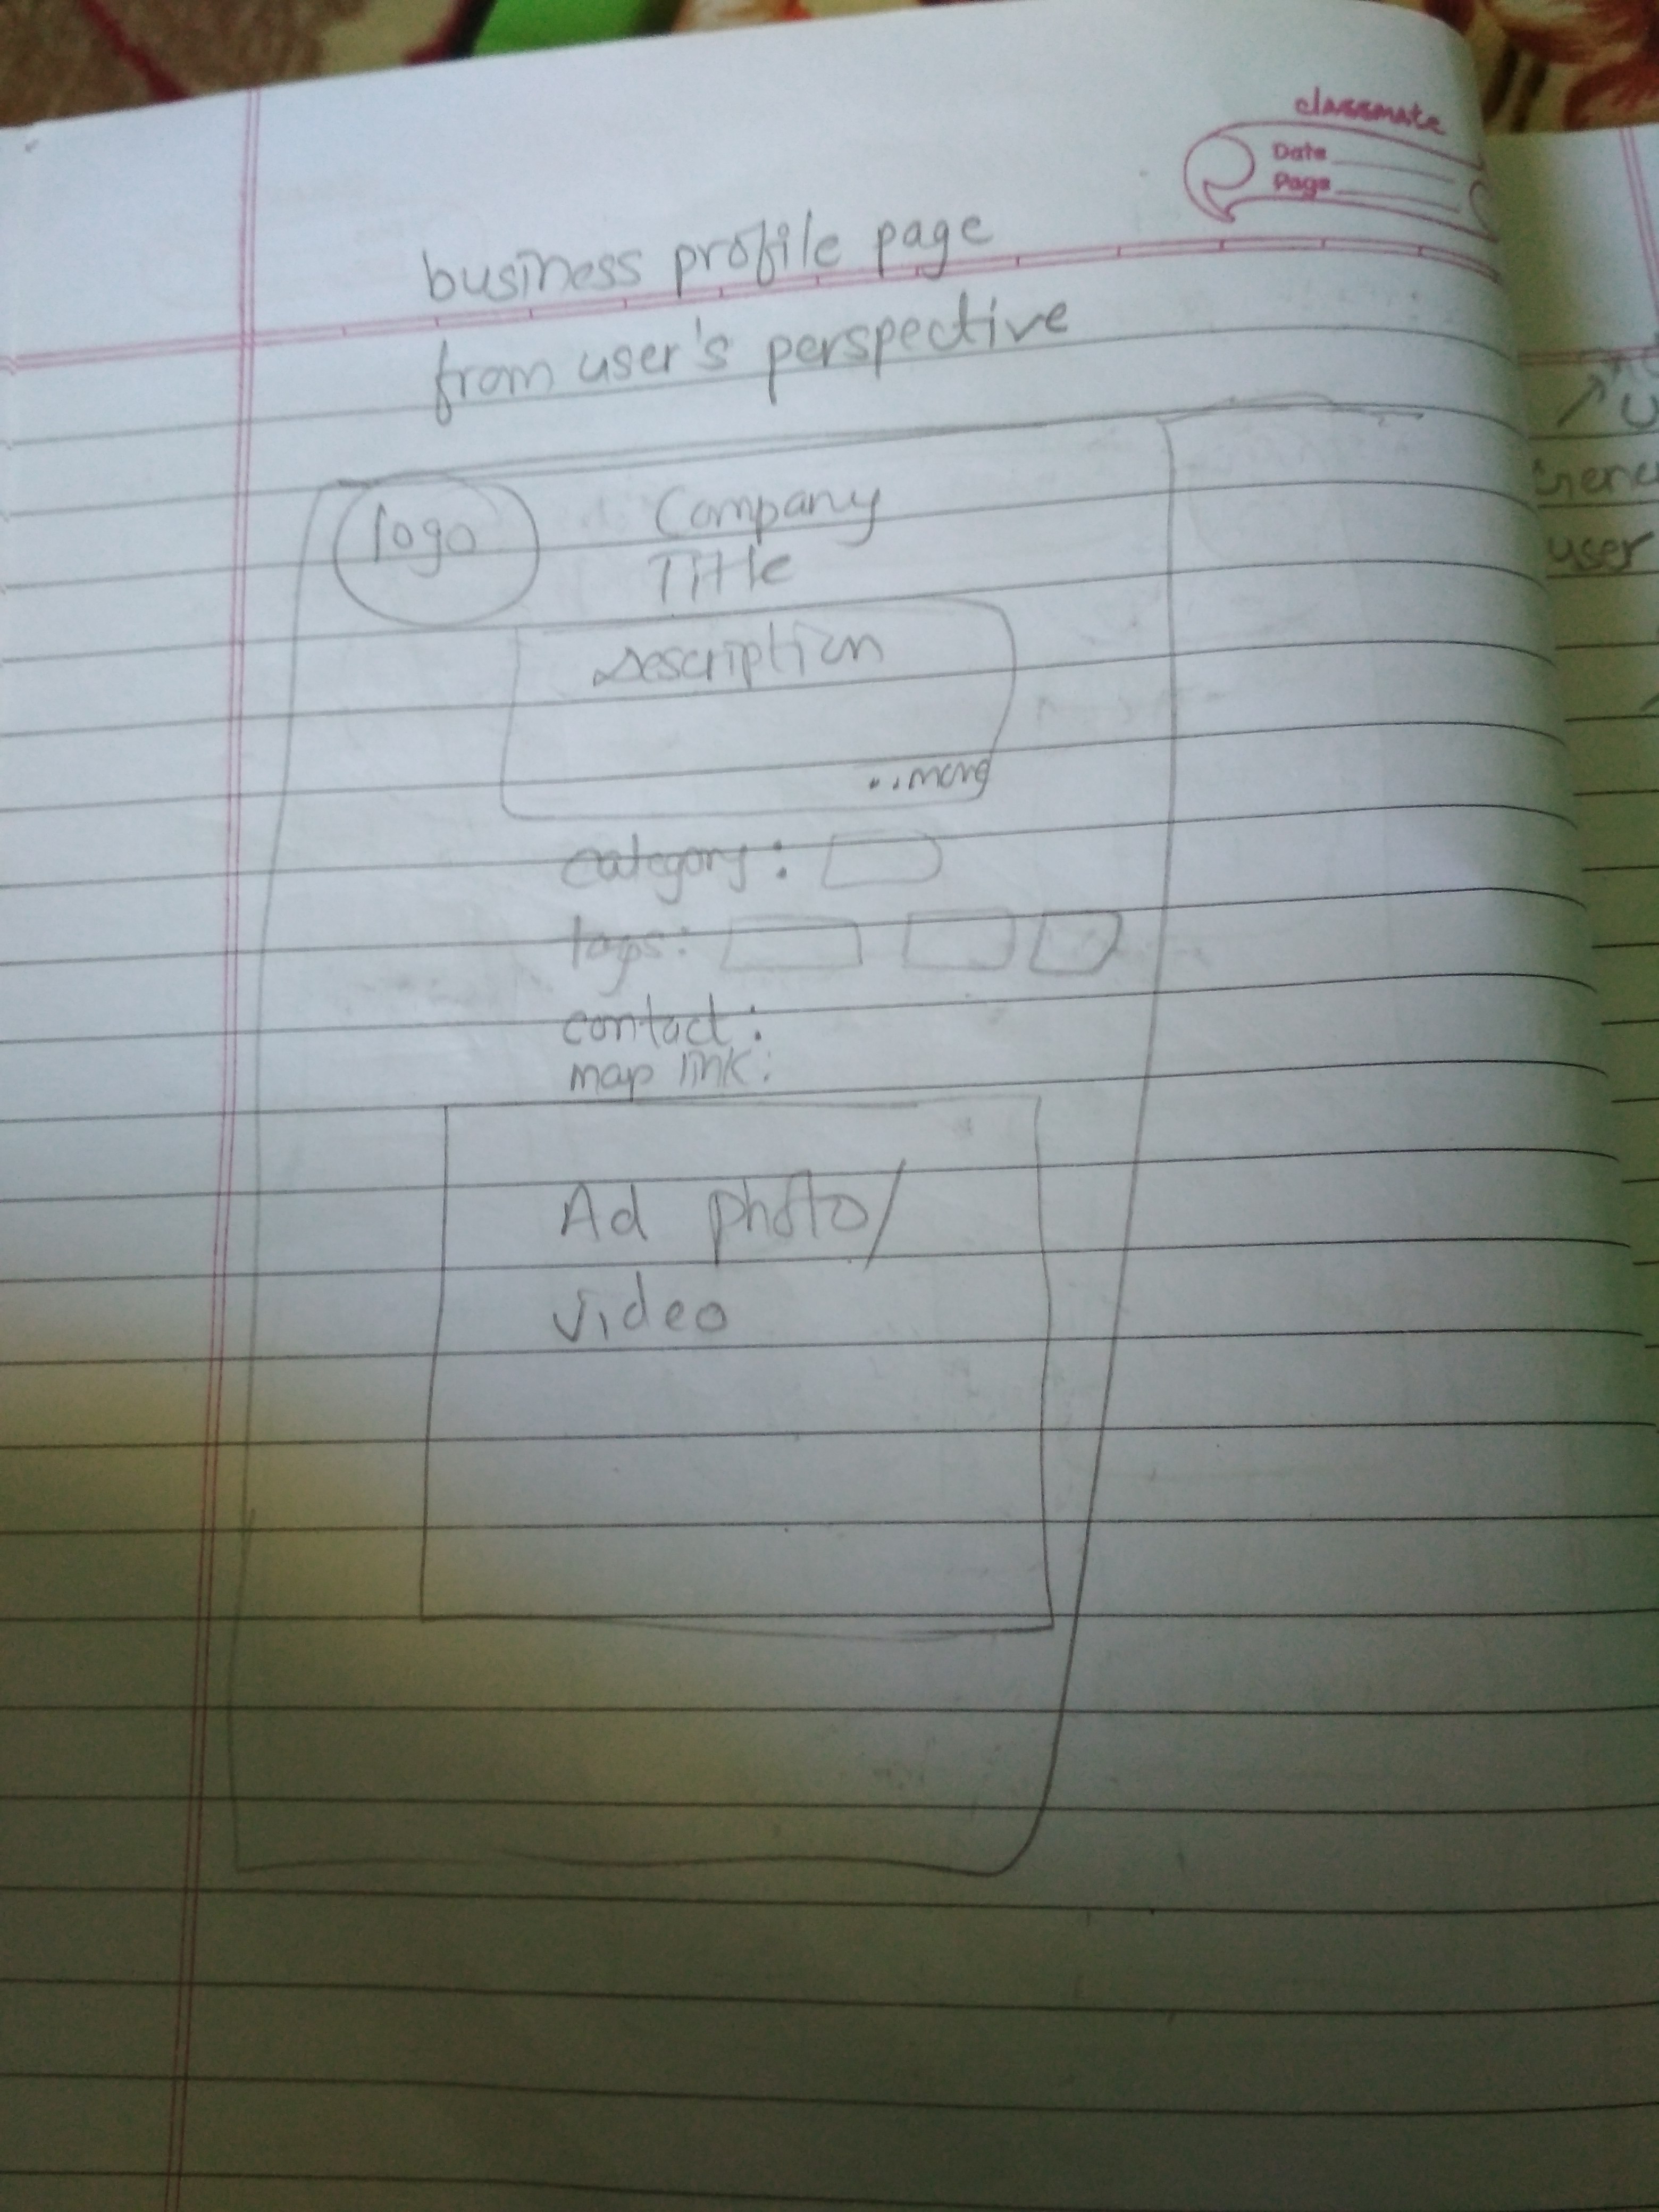 classmate
Date
Page
business profile page
from user's perspective
logo
Company
Title
Description
...more
category:
tags:
contact:
map link:
Ad photo/
video
user